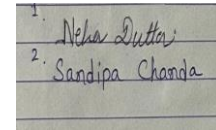 1.
Neha Dutta
2.
Sandipa Chanda